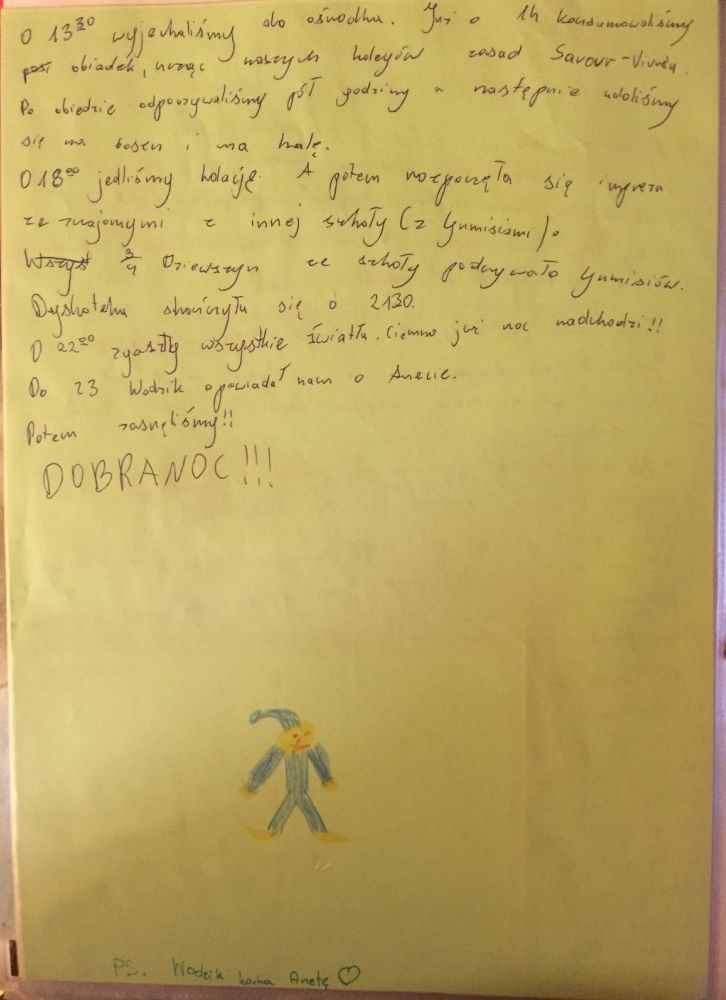 O 13³⁰ wyjechaliśmy do ośrodka. Już o 14 konsumowaliśmy
obiadek, ucząc naszych kolegów zasad Savour-Vivru.
Po obiedzie odpoczywaliśmy pół godziny a następnie udaliśmy
się na basen i na halę.
O 18⁰⁰ jedliśmy kolację. A potem rozpoczęła się impreza
ze znajomymi z innej szkoły (z Gumisiami).
Wszys 3/4 Dziewszyn ze szkoły podrywało Gumisiów.
Dyskoteka skończyła się o 2130.
O 22⁰⁰ zgasły wszystkie światła. Ciemno już noc nadchodzi!!
Do 23 Wodzik opowiadał nam o Anecie.
Potem zasnęliśmy!!
DOBRANOC!!!
PS. Wodzik kocha Anetę ♡